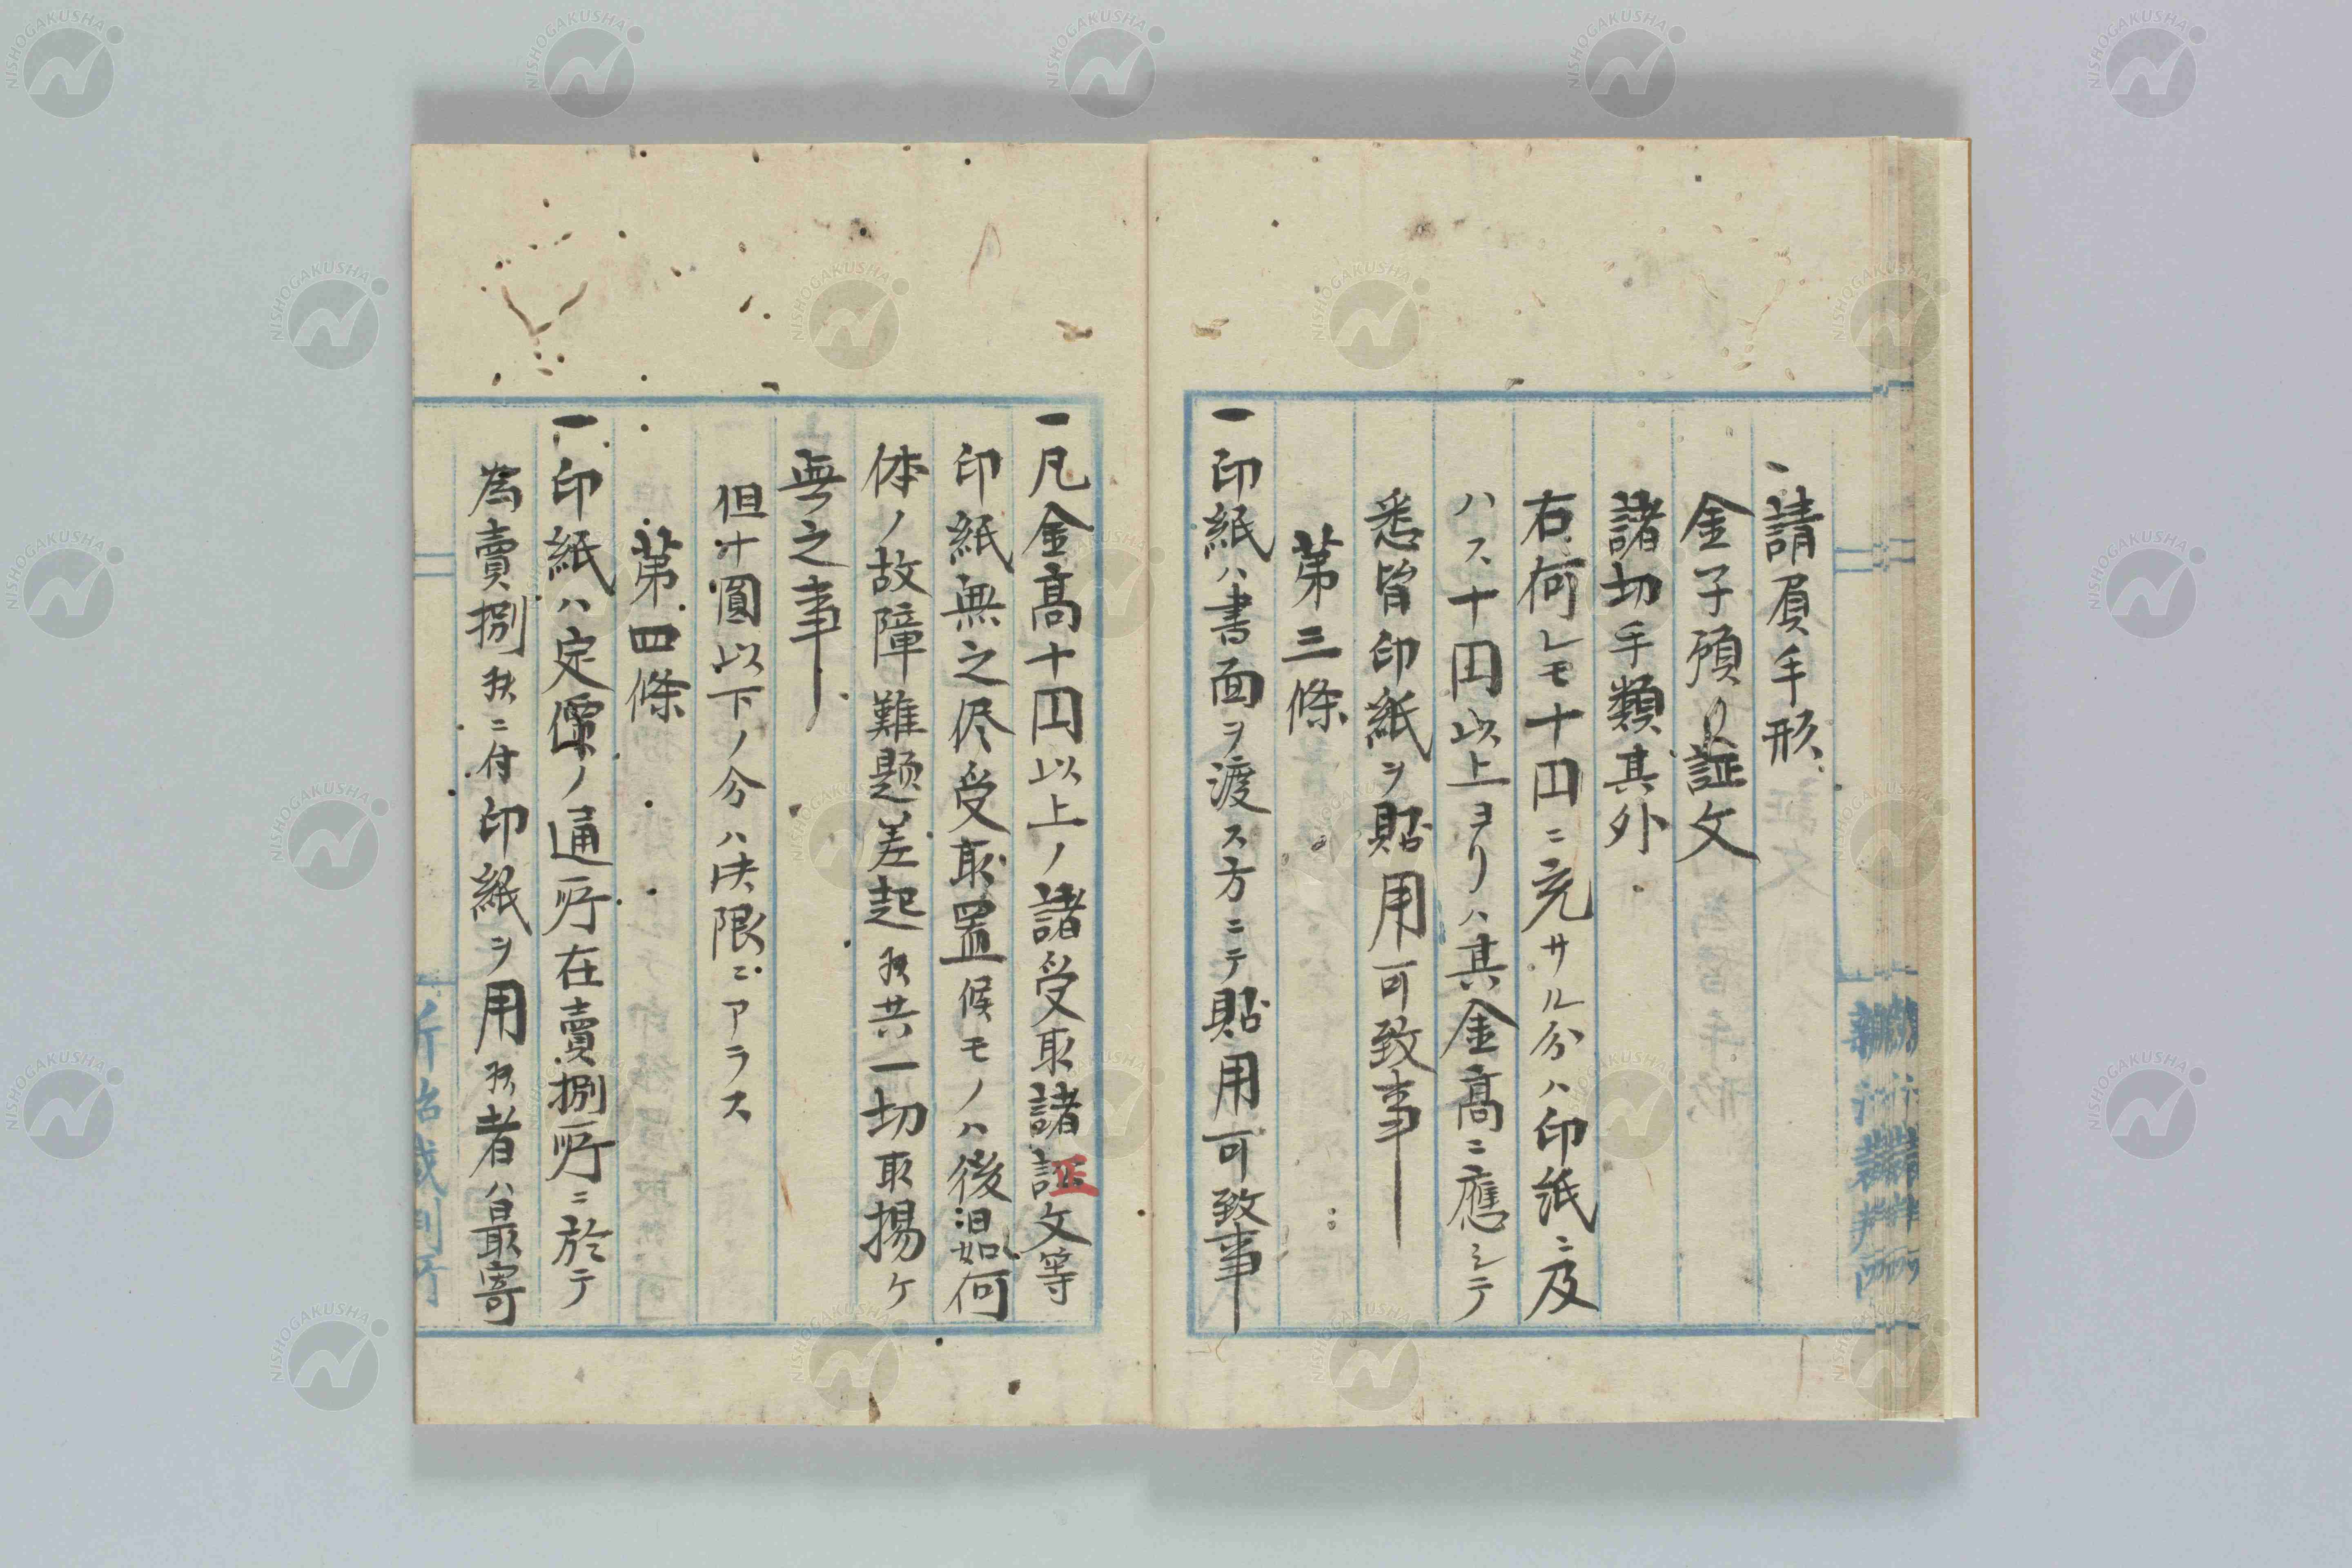 一請負手形
金子預リ証文
諸切手類其外
右何レモ十円ニ充サル分ハ印紙ニ及
ハス十円以上ヨリハ其金高ニ應シテ
悉皆印紙ヲ貼用可致事
第三條
一印紙ハ書面ヲ渡ス方ニテ貼用可致事
一凡金高十円以上ノ諸受取諸証文等
印紙無之侭受取置候モノハ後日如何
体ノ故障難題差起候共一切取揚ケ
無之事
但十圓以下ノ分ハ此限ニアラス
第四條
一印紙ハ定價ノ通所在賣捌所ニ於テ
為賣捌候ニ付印紙ヲ用候者ハ最寄
NISHOGAKUSHA